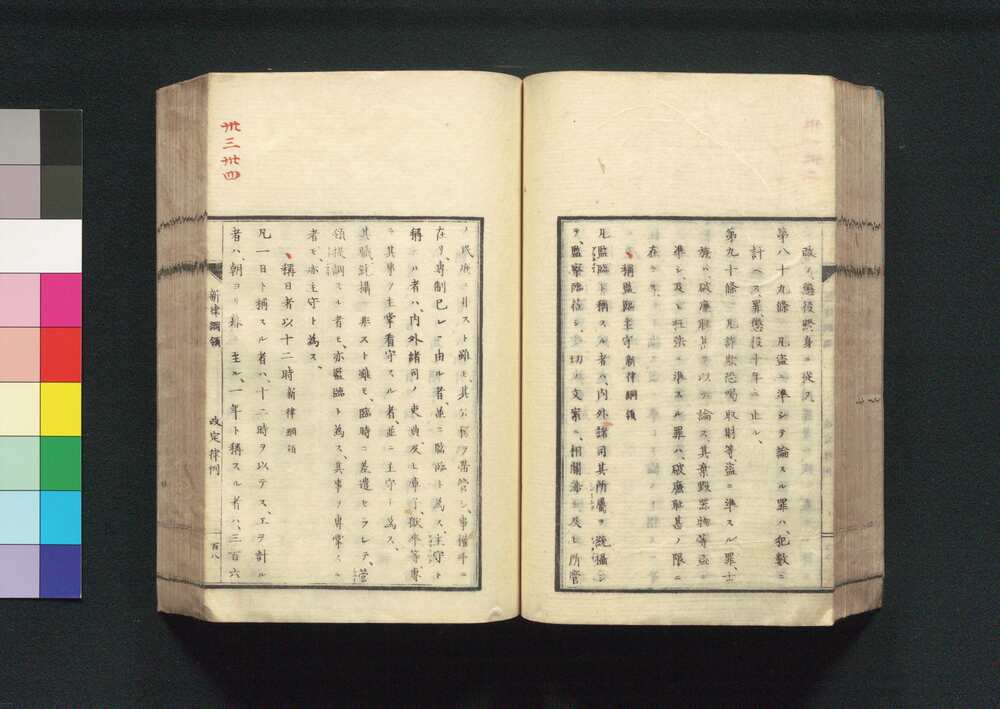 改メ、懲役終身ニ従ス
第八十九條 凡盗ニ準シテ論スル罪ハ、犯數ニ
計ヘス、罪懲役十年ニ止ル、
第九十條 凡詐欺恐喝取財等、盗ニ準スル罪、士
族ハ、破廉恥甚ヲ以テ論ス、其棄毀器物等、盗ニ
準シ、及ヒ枉法ニ準スル罪ハ、破廉恥甚ノ限ニ
在ラス、
稱監臨主守 新律綱領
凡監臨ト稱スル者ハ、内外諸司其所屬ヲ統攝シ
ヲ、監察臨莅シ、一切ノ文案ニ、相關渉シ、及ヒ所管
ノ ニ非スト雖モ、其 ヲ帶管シ、事權斗ニ
在ヲ専制已レニ由ル者、並ニ監臨ト為ス、主守ト
稱スル者ハ、内外諸司ノ吏典、及ヒ庫子、獄卒等、専
ラ其事ヲ主掌看守スル者、並ニ主守ト為ス、
其職統攝ニ非スト雖モ、臨時ニ差遣セラレテ、管
領提調スル者モ、亦監臨ト為ス、其事ヲ専掌スル
者モ、亦主守ト為ス、
稱日者以十二時 新律綱領
凡一日ト稱スル者ハ、十二時ヲ以テス、工ヲ計ル
者ハ、朝ヨリ暮ニ至ル、一年ト稱スル者ハ、三百六
新律綱領 改定律例 百八
卅三卅四